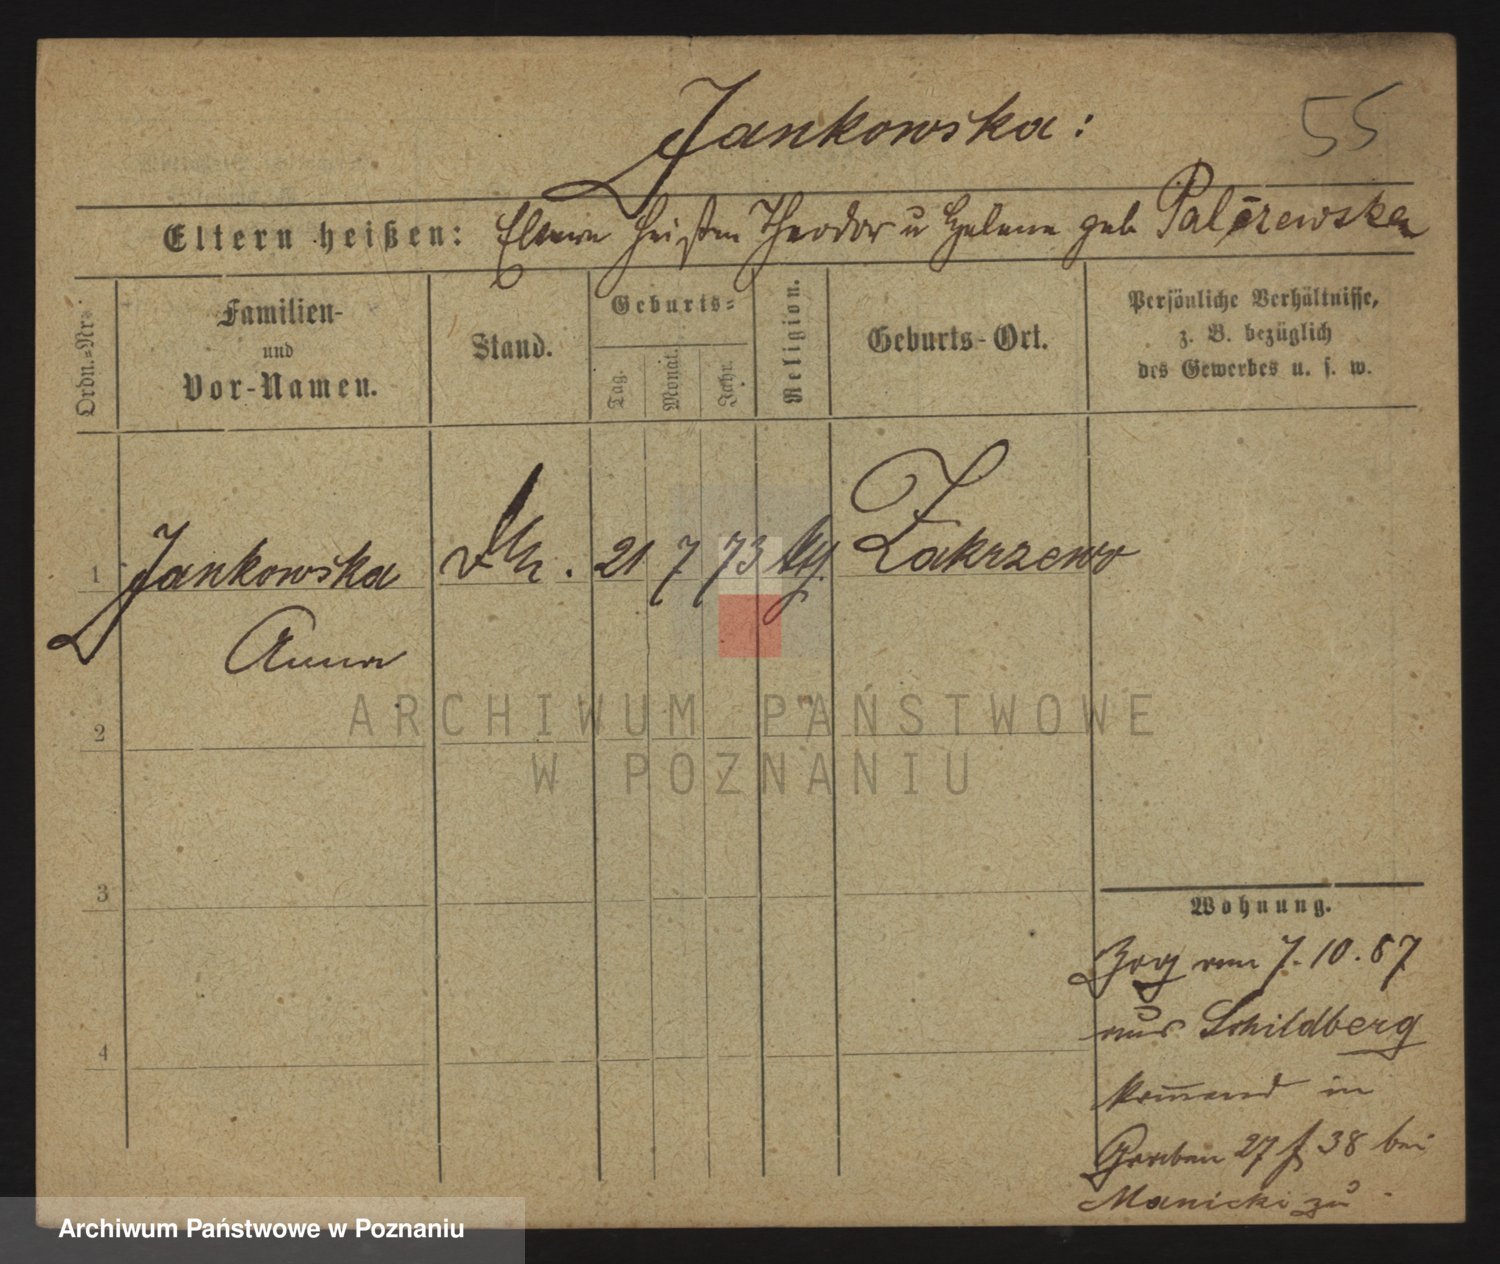 Jankowska:
55
Eltern heißen: Eltern heißen Theodor u Helene geb Palczewska
Ordn.=Nr.
Familien-
und
Vor-Namen.
Stand.
Geburts=
Tag.
Monat.
Jahr.
Religion.
Geburts-Ort.
Persönliche Verhältnisse,
z. B. bezüglich
des Gewerbes u. s. w.
1 Jankowska 21 7 73 Zakrzewo
Anna
2
3
Wohnung.
Zog von 7. 10. 87
aus Schildberg
4
kommend in
Graben 27 f 38 bei
Manicki zu
ARCHIWUM PAŃSTWOWE
W POZNANIU
Archiwum Państwowe w Poznaniu